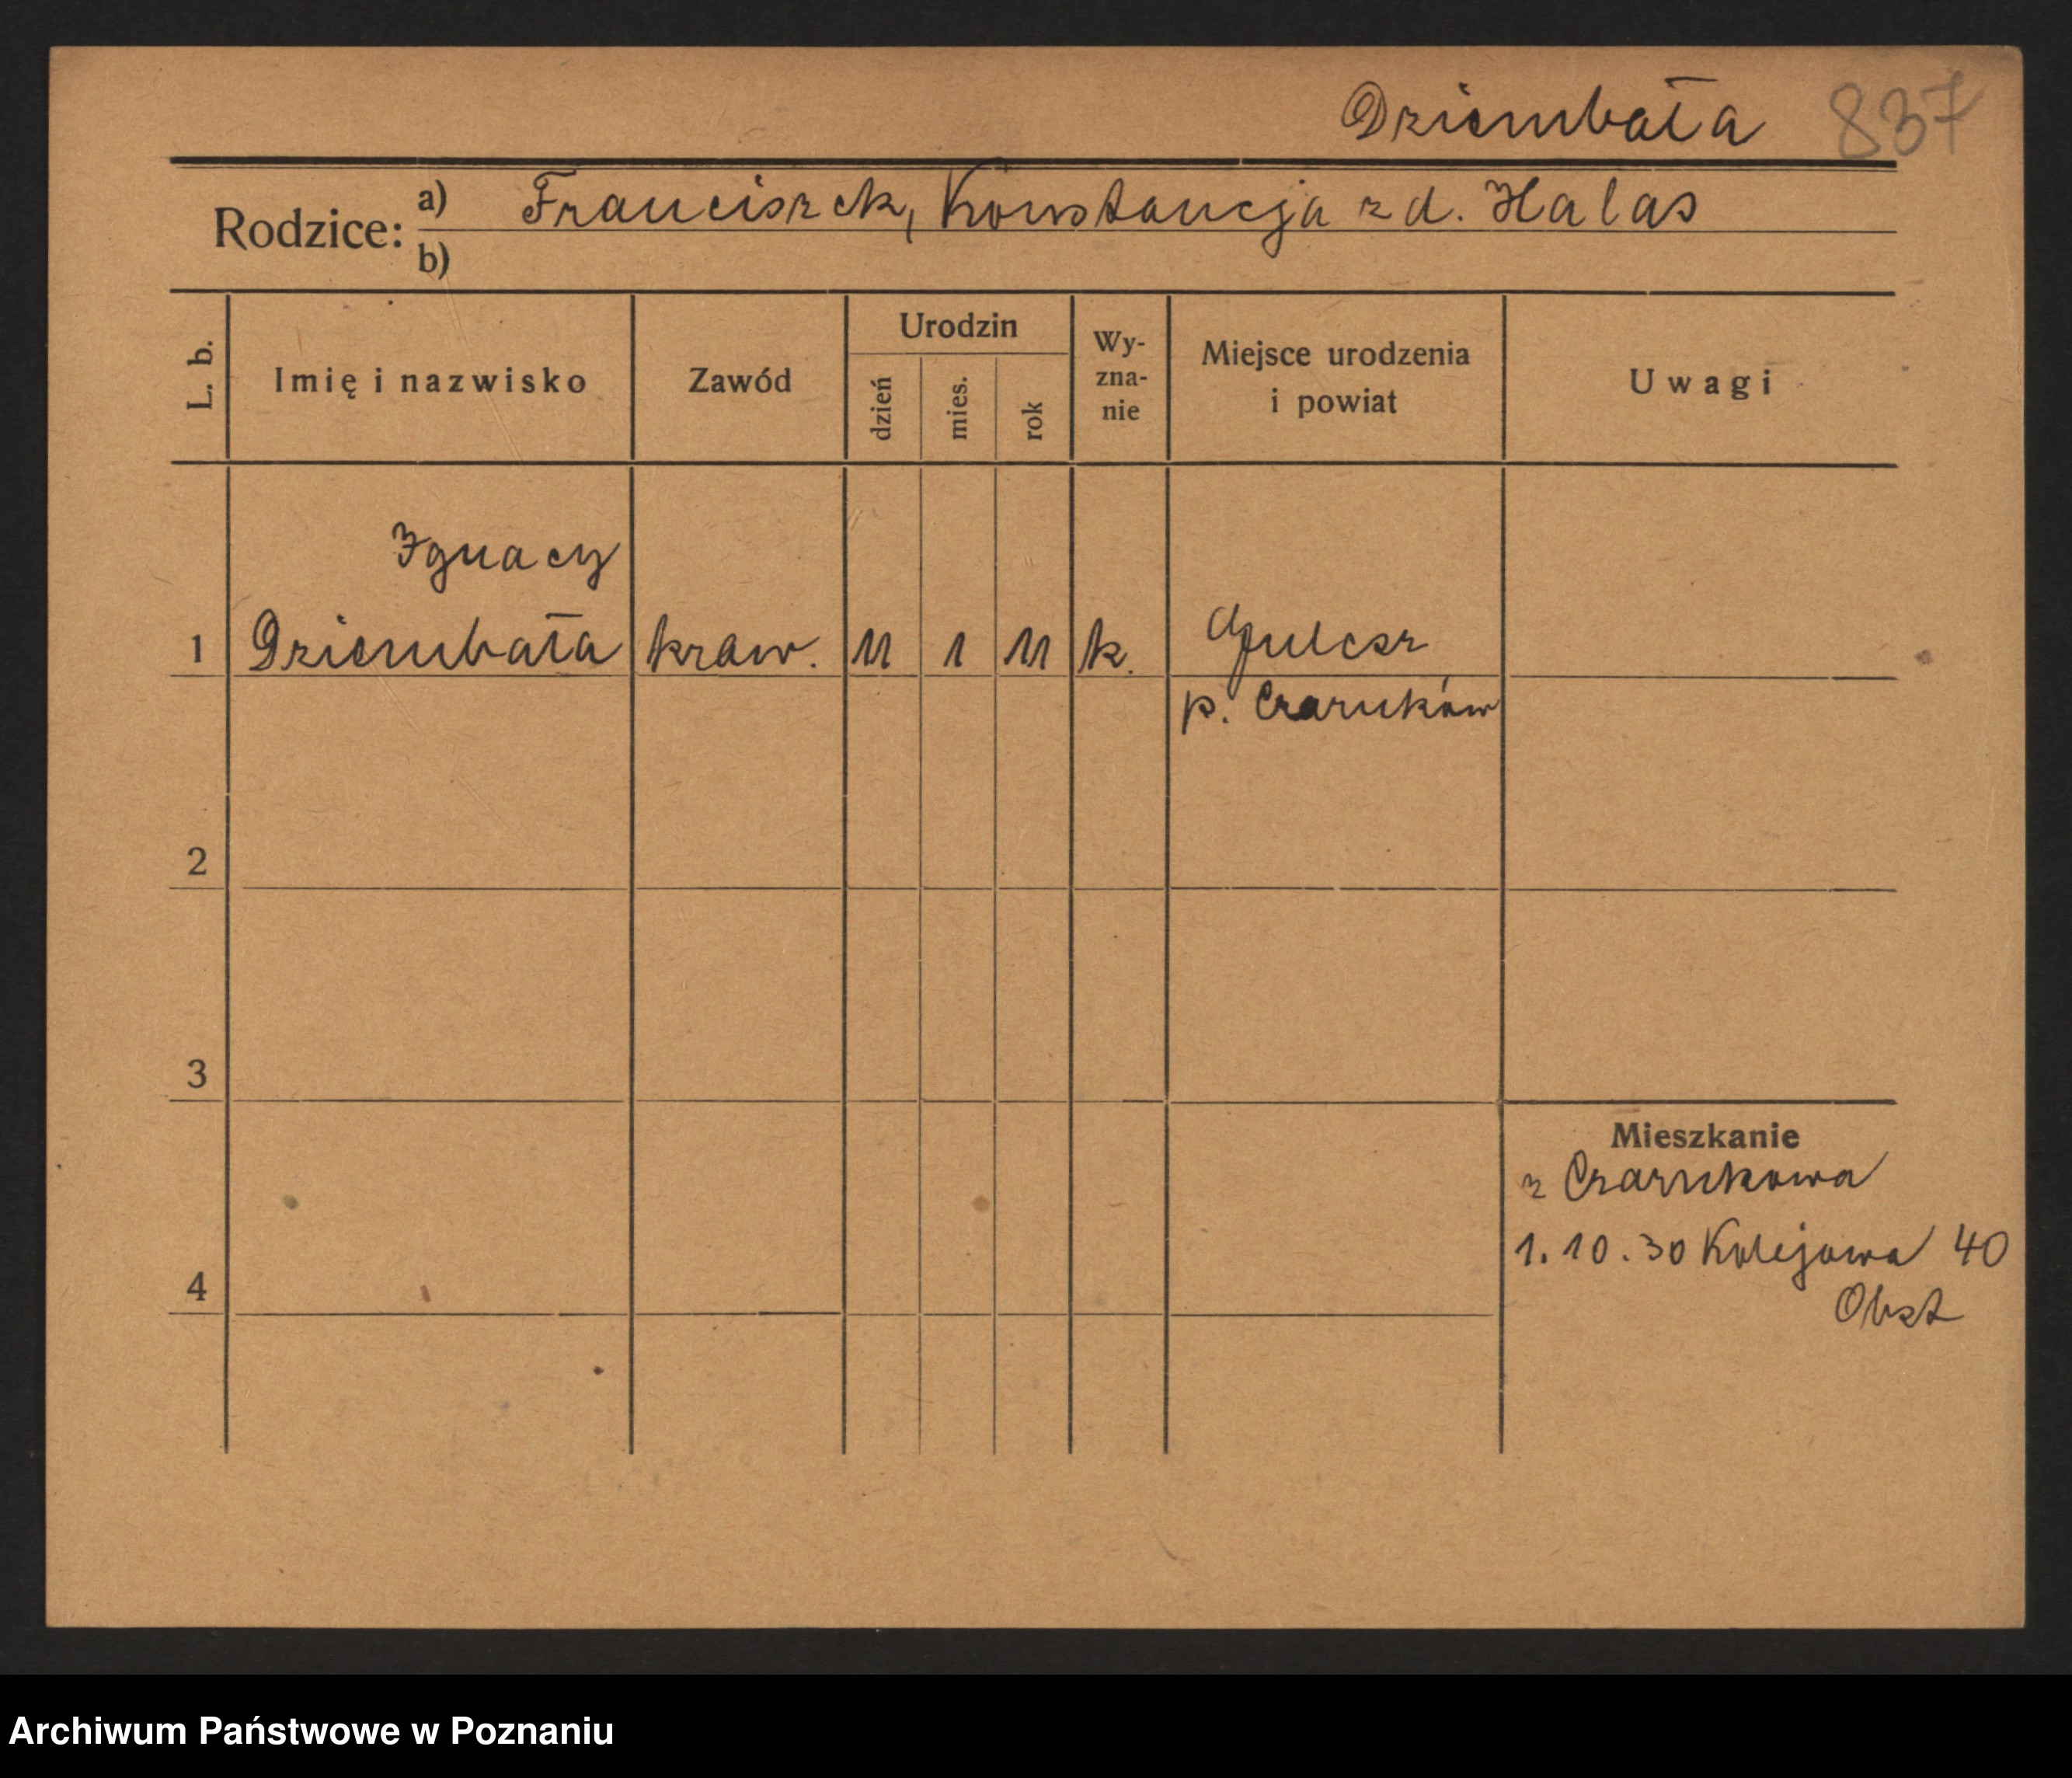 Dziembała 837
Rodzice: a) Franciszek, Konstancja z d. Halas
b)
L. b. Imię i nazwisko Zawód Urodzin dzień mies. rok Wy-zna-nie Miejsce urodzenia i powiat Uwagi
Ignacy
1 Dziembała kraw. 11 1 11 k. Gulcz
p. Czarnków
2
3
Mieszkanie
z Czarnkowa
1.10.30 Kolejowa 40
4
Archiwum Państwowe w Poznaniu